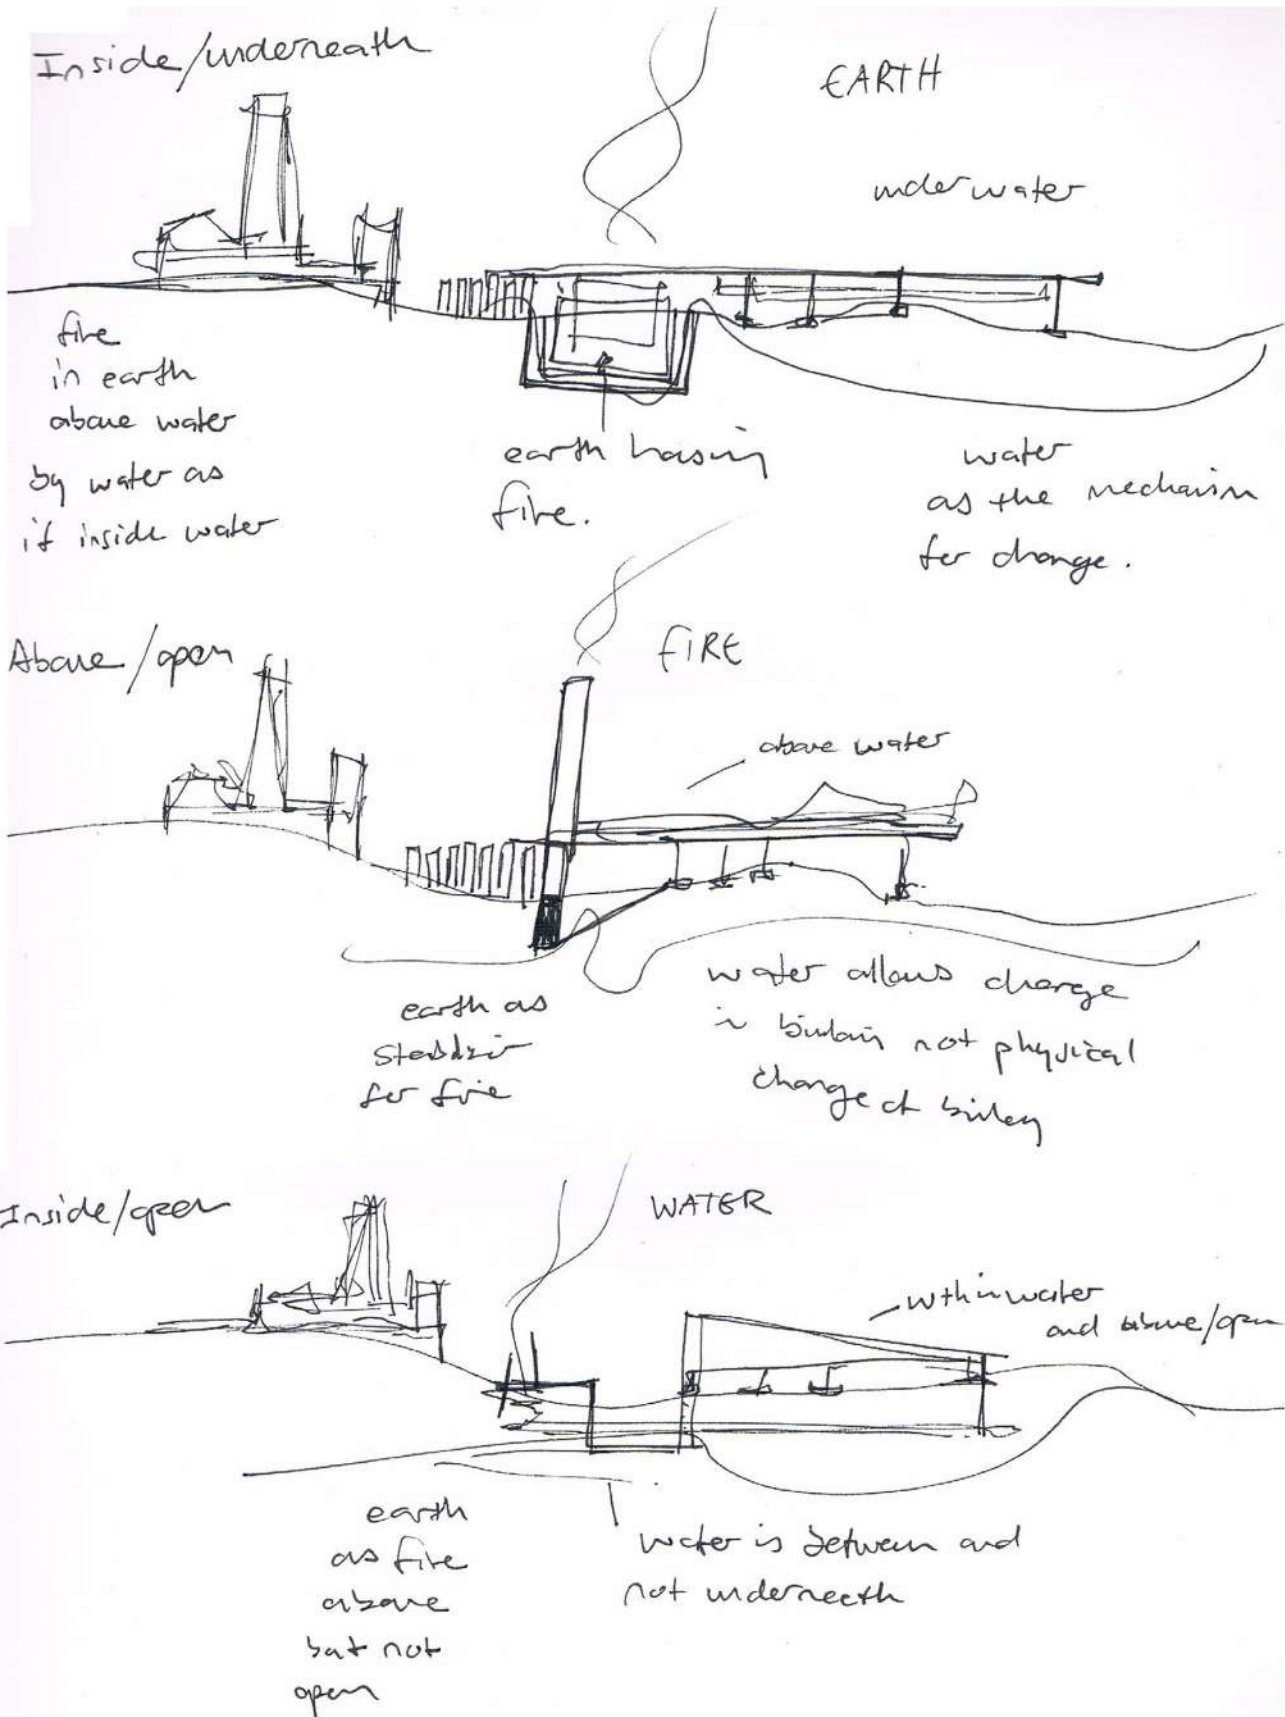 Inside/underneath
EARTH
underwater
fire
in earth
above water
by water as
if inside water
earth housing
fire.
water
as the mechanism
for change.
Above/open
FIRE
above water
earth as
for fire
water allows change
in not physical
change of
Inside/open
WATER
within water
and above/open
earth
as fire
above
but not
open
water is between and
not underneath